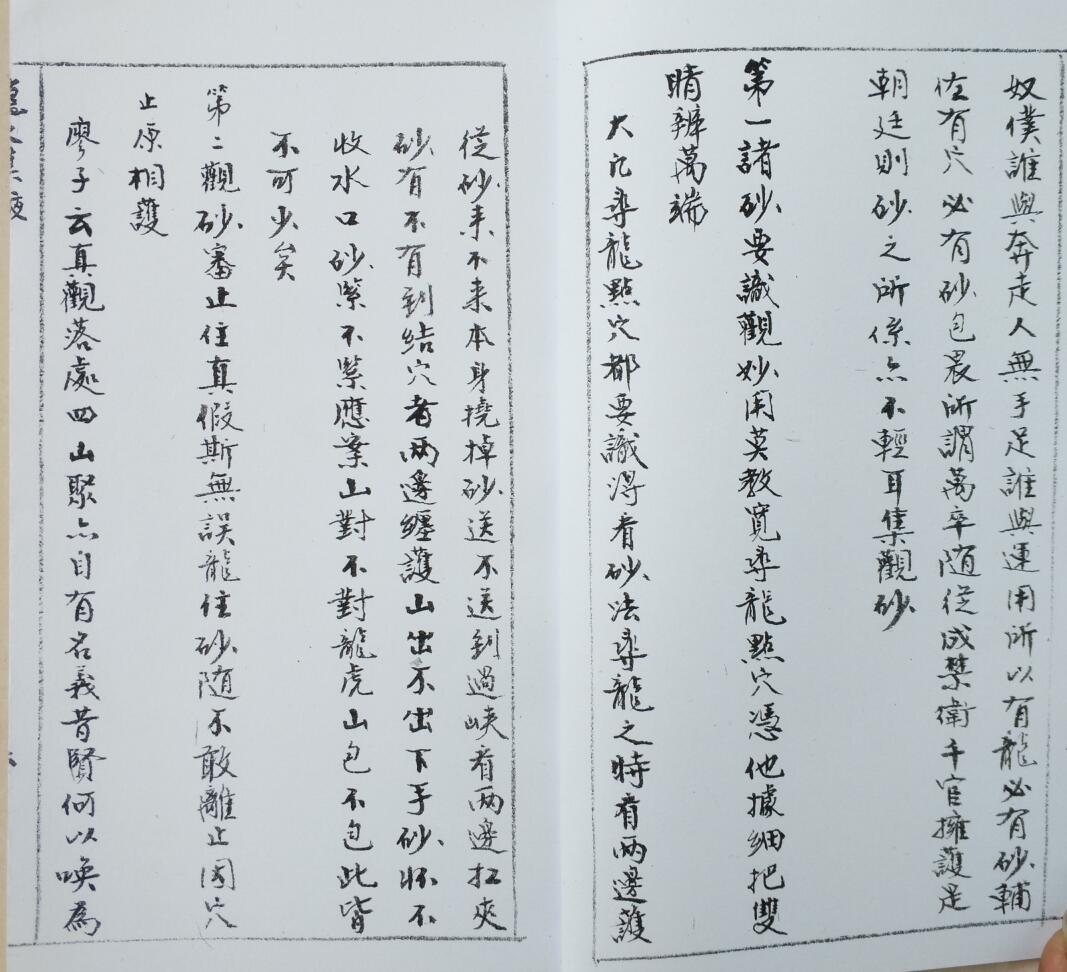 奴僕誰與奔走人無手足誰與運用所以有龍必有砂輔
佐有穴必有砂包裹所謂萬卒随從成禁衛千官擁護是
朝廷則砂之所係亦不輕耳集觀砂
第一諸砂要識觀妙用莫教寬尋龍點穴憑他據細把雙
睛辨萬端
大凢尋龍點穴都要識得看砂法尋龍之時看兩邊護
從砂来不来本身撓掉砂送不送到過峽看兩邊扛夾
砂有不有到結穴者兩邊纒護山出不出下手砂怀不
收水口砂緊不緊應案山對不對龍虎山包不包此皆
不可少矣
第二觀砂審止住真假斯無誤龍住砂随不敢離止因穴
止原相護
廖子云真觀落處四山聚亦目有名義昔賢何以唤為